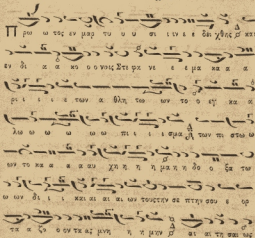 Π ρ ω ω τος εν μαρ το υ ου σι ι νε ε δει χθης και
εν δι α α κο ο νοις Στε φα νε ε μα κα α α
ρι ι ι ε των α θλη των ων το ο εγ κα α
λω ω ω ω ω πι ι ι σμα των πι στω ω
ων το κα α α αυ χη η η μα η η δο ο ξα των
ων δι ι και αι αι αι ων τους την σε πτην σου ε ορ
τα α ζο ο ον τας μνη η η μην αι αι τη σαι ως